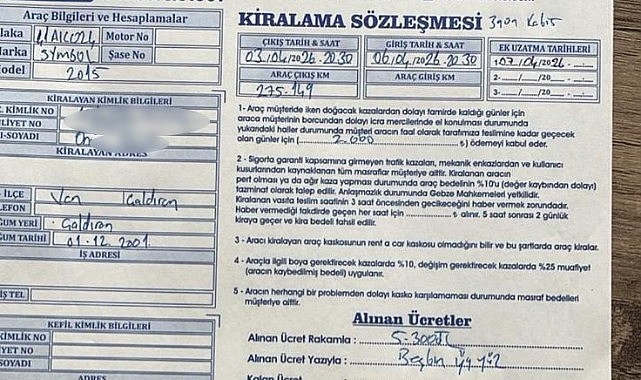 Araç Bilgileri ve Hesaplamalar
Plaka
Motor No
Marka Symbol Şase No
Model 2015
KİRALAYAN KİMLİK BİLGİLERİ
KİMLİK NO
LİYET NO
I-SOYADI
KİRALAYAN ADRES
İLÇE Van Çaldıran
LEFON
ĞUM YERİ Çaldıran
ĞUM TARİHİ 01.12.2001
İŞ ADRESİ
İŞ TEL
KEFİL KİMLİK BİLGİLERİ
KİMLİK NO
YET NO
SOYADI
ADRES
KİRALAMA SÖZLEŞMESİ
ÇIKIŞ TARİH & SAAT GİRİŞ TARİH & SAAT EK UZATMA TARİHLERİ
03/04/2026.20:30 06/04/2026.20:30 1-07/04/2026-
ARAÇ ÇIKIŞ KM ARAÇ GİRİŞ KM 2-....../....../20......-
275.149 3-....../....../20......-
1- Araç müşteride iken doğacak kazalardan dolayı tamirde kaldığı günler için
araca müşterinin borcundan dolayı icra mercilerinde el konulması durumunda
yukarıdaki haller durumunda müşteri aracın faal olarak tarafımıza teslimine kadar geçecek
olan günler için (.......2.000.......₺) ödemeyi kabul eder.
2 - Sigorta garanti kapsamına girmeyen trafik kazaları, mekanik enkazlardan ve kullanıcı
kusurlarından kaynaklanan tüm masraflar müşteriye aittir. Kiralanan aracın
pert olması ya da ağır kaza yapması durumunda araç bedelinin %10u (değer kaybından dolayı)
tazminat olarak talep edilir. Anlaşmazlık durumunda Gebze Mahkemeleri yetkilidir.
Kiralanan vasıta teslim saatinin 3 saat öncesinden gecikeceğini haber vermek zorundadır.
Haber vermediği takdirde geçen her saat için .................. ₺ alınır. 5 saat sonrası 2 günlük
kiraya geçer ve kira bedeli tahsil edilir.
3 - Aracı kiralayan araç kaskosunun rent a car kaskosu olmadığını bilir ve bu şartlarda araç kiralar.
4 - Araçla ilgili boya gerektirecek kazalarda %10, değişim gerektirecek kazalarda %25 muafiyet
(aracın kaybedilmiş bedeli) uygulanır.
5 - Aracın herhangi bir problemden dolayı kasko karşılamaması durumunda masraf bedelleri
müşteriye aittir.
Alınan Ücretler
Alınan Ücret Rakamla : 5.300TL
Alınan Ücret Yazıyla : Beşbin Üçyüz
Kalan Ücret